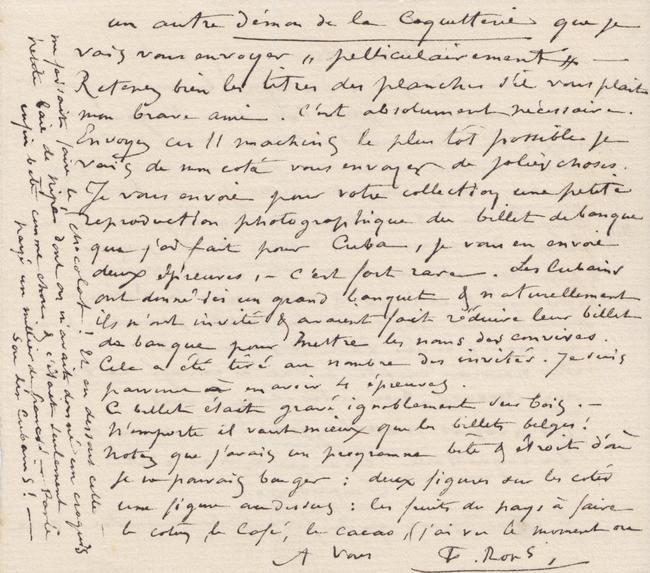 un autre Démon de la Coquetterie que je
vais vous envoyer " pelliculairement " —
Retenez bien les titres des planches s'il vous plait
mon brave ami. C'est absolument nécessaire.
Envoyez ces 11 machins le plus tot possible je
vais de mon coté vous envoyer de jolies choses.
Je vous envoie pour votre collection une petite
reproduction photographique du billet de banque
que j'ai fait pour Cuba, je vous en envoie
deux épreuves, — c'est fort rare. Les Cubains
ont donné ici un grand banquet & naturellement
ils m'ont invité & avaient fait réduire leur billet
de banque pour mettre les noms des convives.
Cela a été tiré au nombre des invités. Je suis
parvenu à en avoir 4 épreuves.
Ce billet était gravé ignoblement sur bois. —
N'importe il vaut mieux que les billets belges!
Notez que j'avais un programme bête & étroit d'où
je ne pouvais bouger : deux figures sur les cotés
une figure au dessus : les fruits du pays à faire
le coton, le Café, le cacao, (j'ai vu le moment ou
A Vous F. Rops,
me faisait faire le chocolat! Et en dessous cette
baie de Nipe dont on m'avait donné un croquis
enfin bête comme chou & c'était seulement
payé un millier de francs! — Parle
des Cubains! —